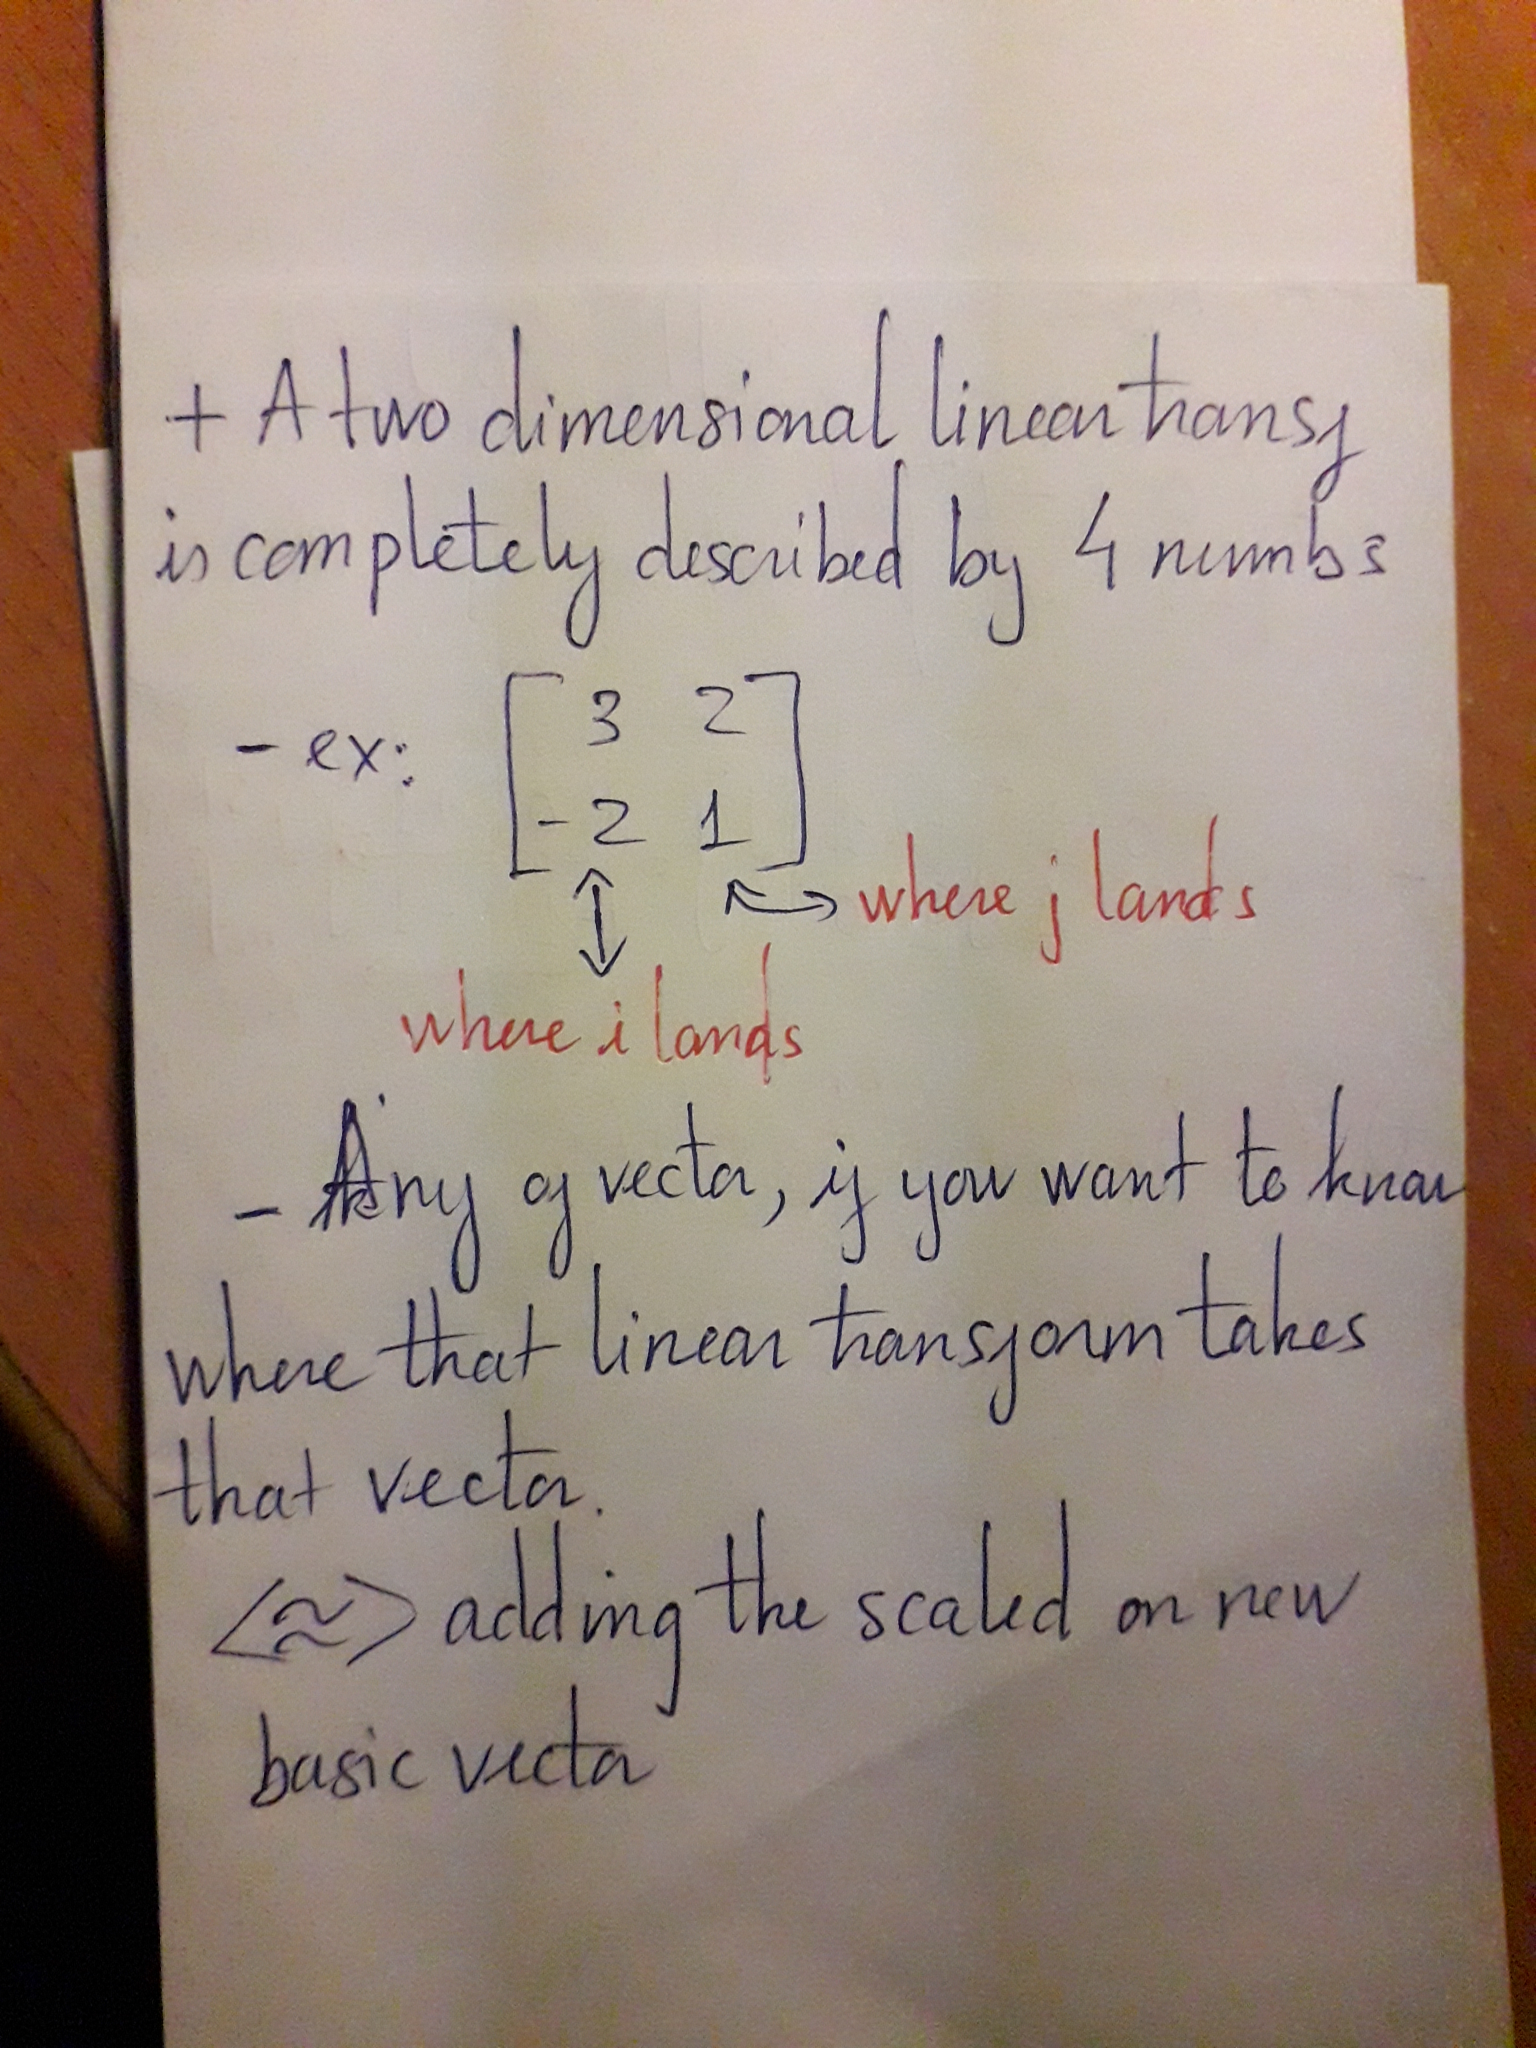 + A two dimensional linear transf
is completely described by 4 numbs
- ex: [3 2
-2 1]
where j lands
where i lands
- Any of vector, if you want to know
where that linear transform takes
that vector.
<≈> adding the scaled on new
basic vector